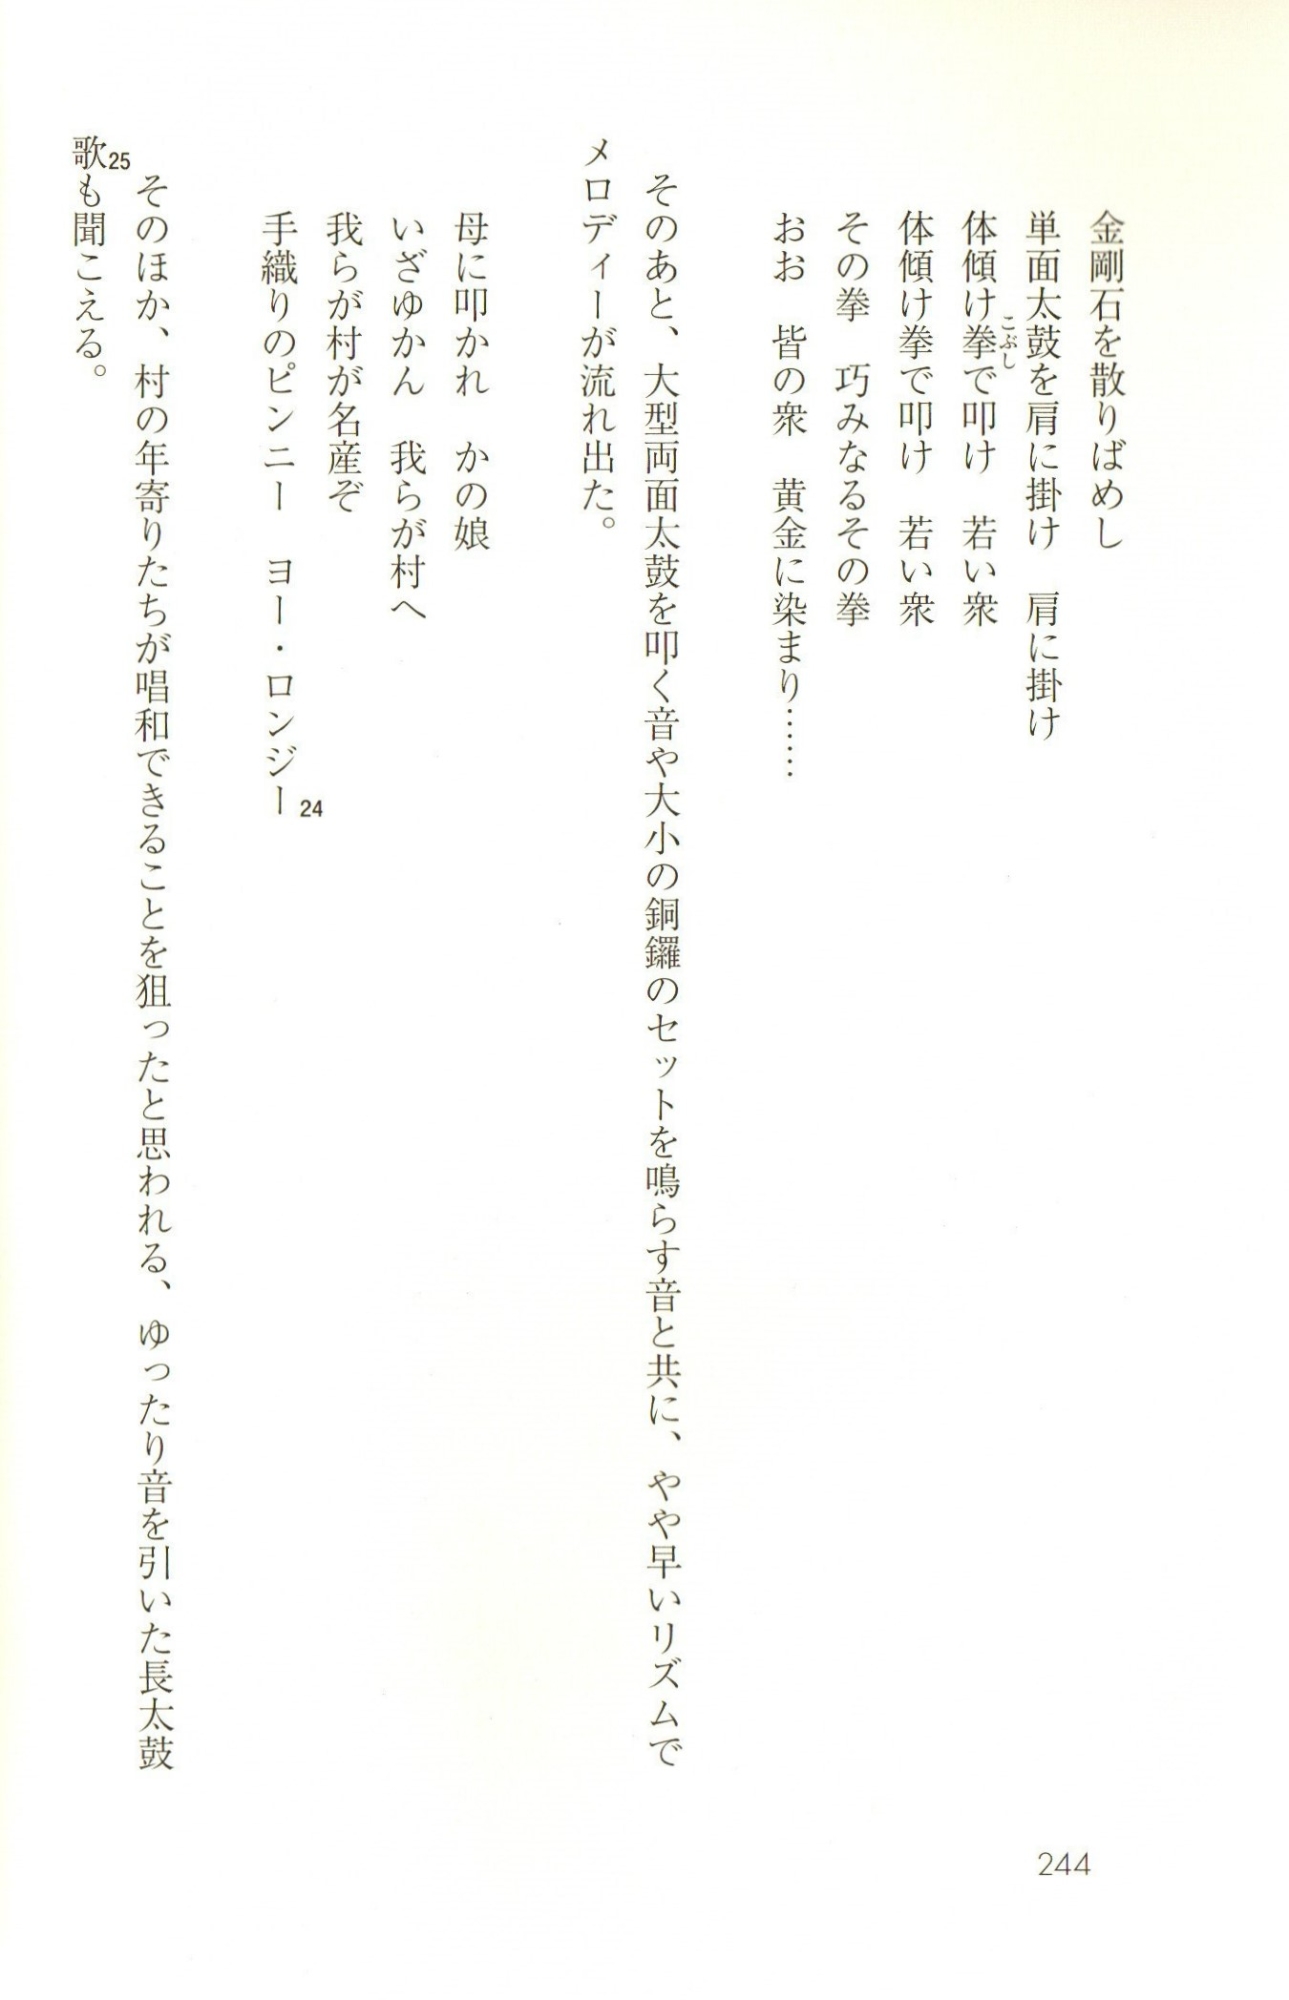 金剛石を散りばめし
単面太鼓を肩に掛け　肩に掛け
体傾け拳で叩け　若い衆
こぶし
体傾け拳で叩け　若い衆
その拳　巧みなるその拳
おお　皆の衆　黄金に染まり……
そのあと、大型両面太鼓を叩く音や大小の銅鑼のセットを鳴らす音と共に、やや早いリズムで
メロディーが流れ出た。
母に叩かれ　かの娘
いざゆかん　我らが村へ
我らが村が名産ぞ
手織りのピンニー　ヨー・ロンジー24
そのほか、村の年寄りたちが唱和できることを狙ったと思われる、ゆったり音を引いた長太鼓
歌25も聞こえる。
244